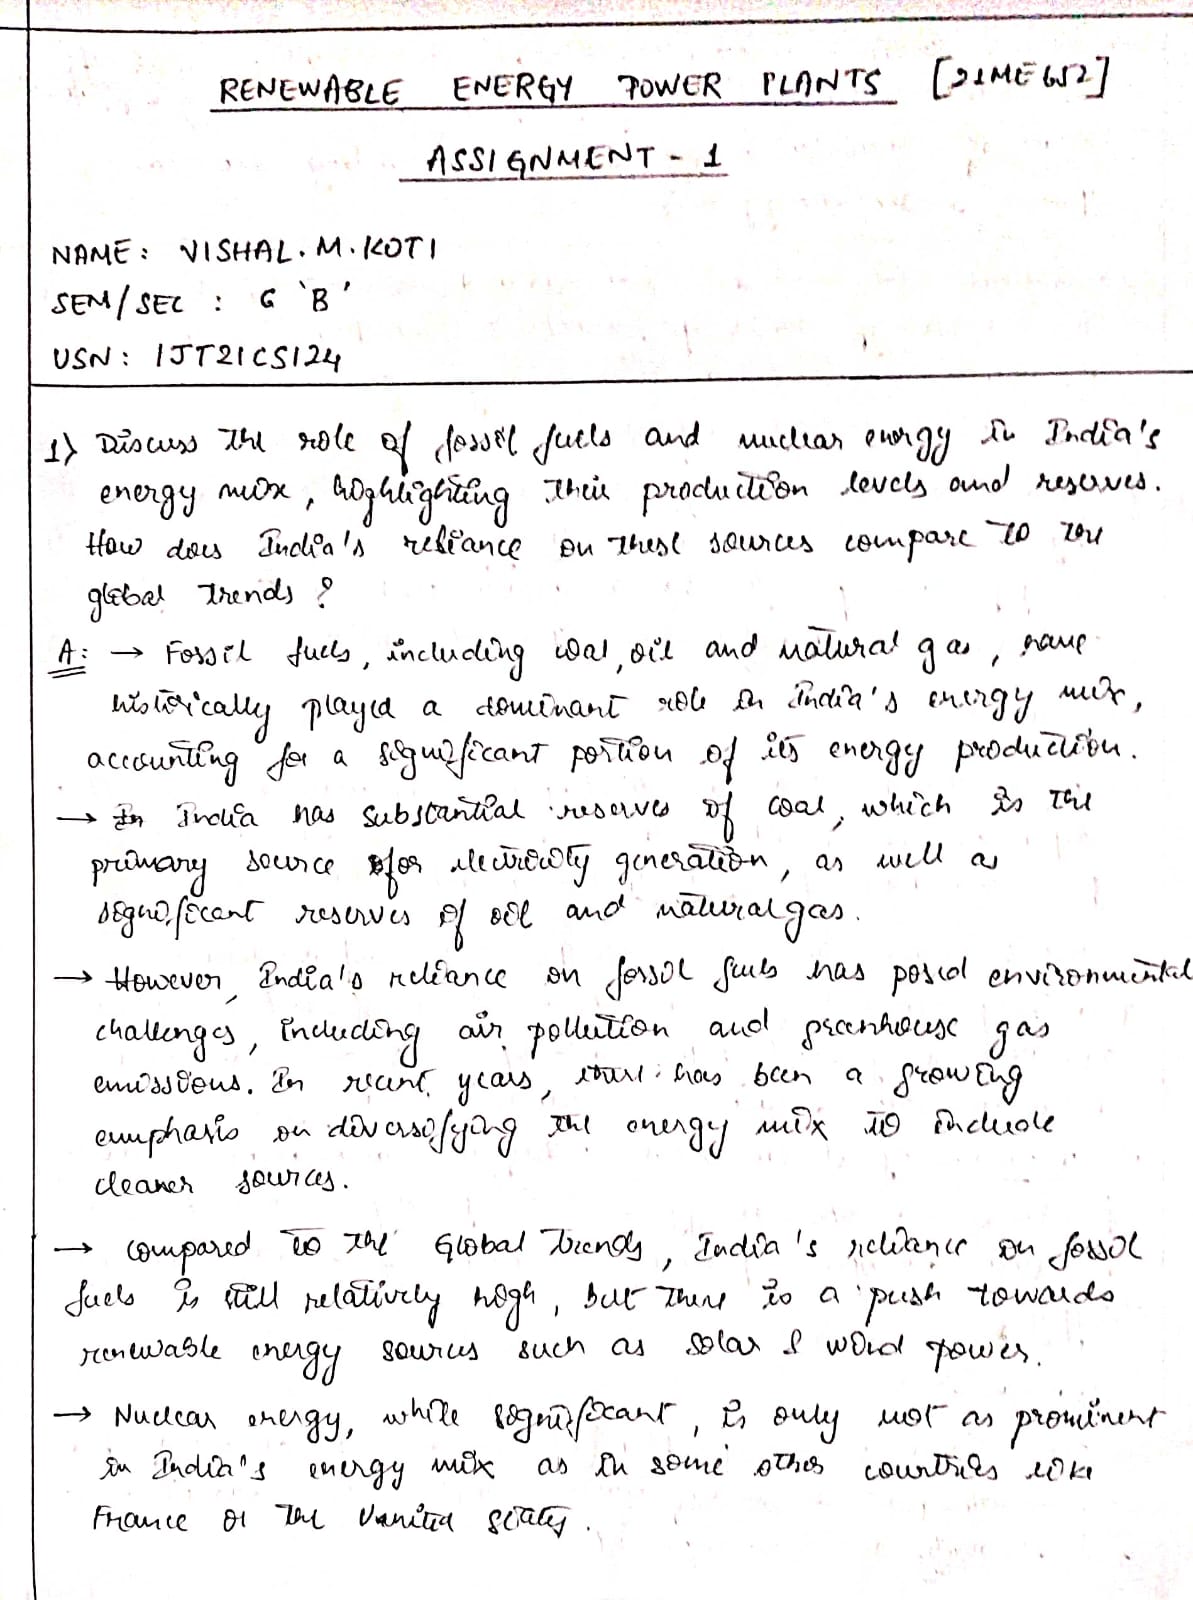 RENEWABLE ENERGY POWER PLANTS [21ME652]
ASSIGNMENT - 1
NAME: VISHAL.M.KOTI
SEM/SEC : 6 'B'
USN: 1JT21CS124
1) Discuss the role of fossil fuels and nuclear energy in India's
energy mix, highlighting their production levels and reserves.
How does India's reliance on these sources compare to the
global trends ?
A: → Fossil fuels, including coal, oil and natural gas, have
historically played a dominant role in India's energy mix,
accounting for a significant portion of its energy production.
→ In India has substantial reserves of coal, which is the
primary source for electricity generation, as well as
significant reserves of oil and natural gas.
→ However, India's reliance on fossil fuels has posed environmental
challenges, including air pollution and greenhouse gas
emissions. In recent years, there has been a growing
emphasis on diversifying the energy mix to include
cleaner sources.
→ compared to the Global trends, India's reliance on fossil
fuels is still relatively high, but there is a push towards
renewable energy sources such as solar & wind power.
→ Nuclear energy, while significant, is only not as prominent
in India's energy mix as in some other countries like
France or the Uanited states.